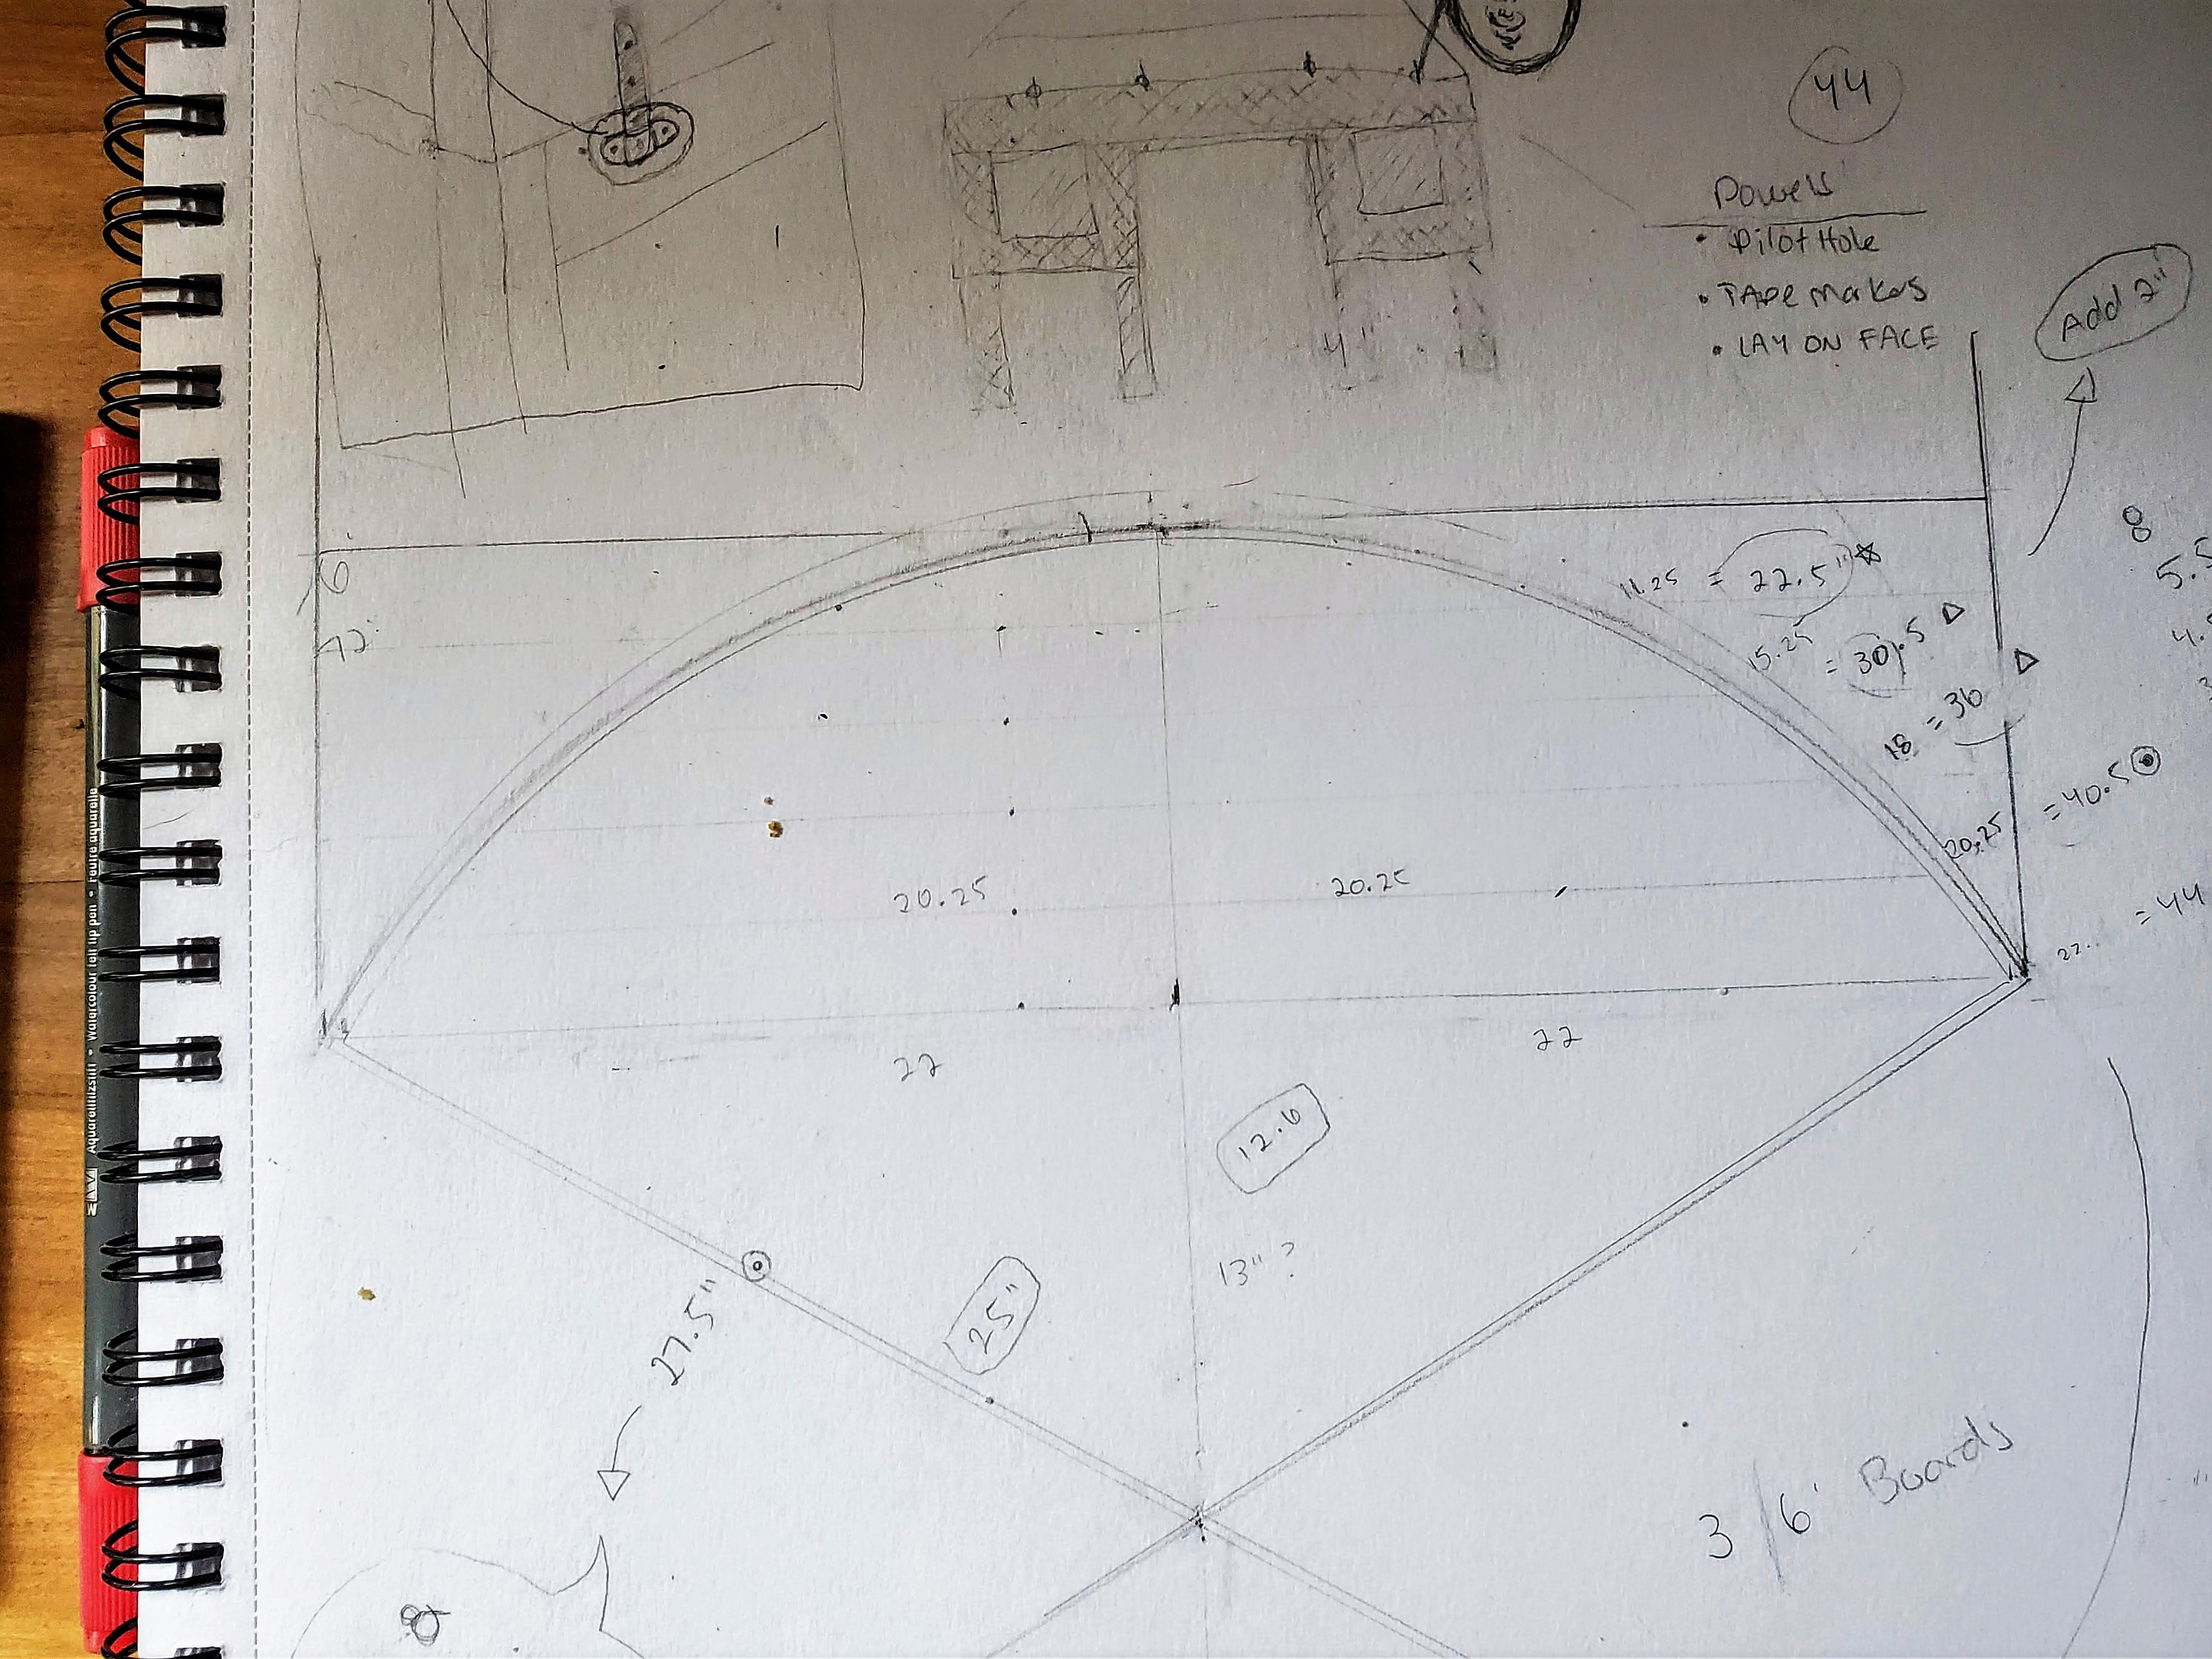 44
Dowels
• Pilot Hole
• TAPE Markers
• LAY ON FACE
Add 2"
4"
8
5.5
6"
11.25 = 22.5"
15.25 = 30.5
18 = 36
20.25 = 40.5
22. = 44
20.25
20.25
22
22
12.6
13" ?
25"
27.5"
3 / 6' Boards
8
Aquarellmalstift • Watercolour felt tip pen • Feutre aquarelle